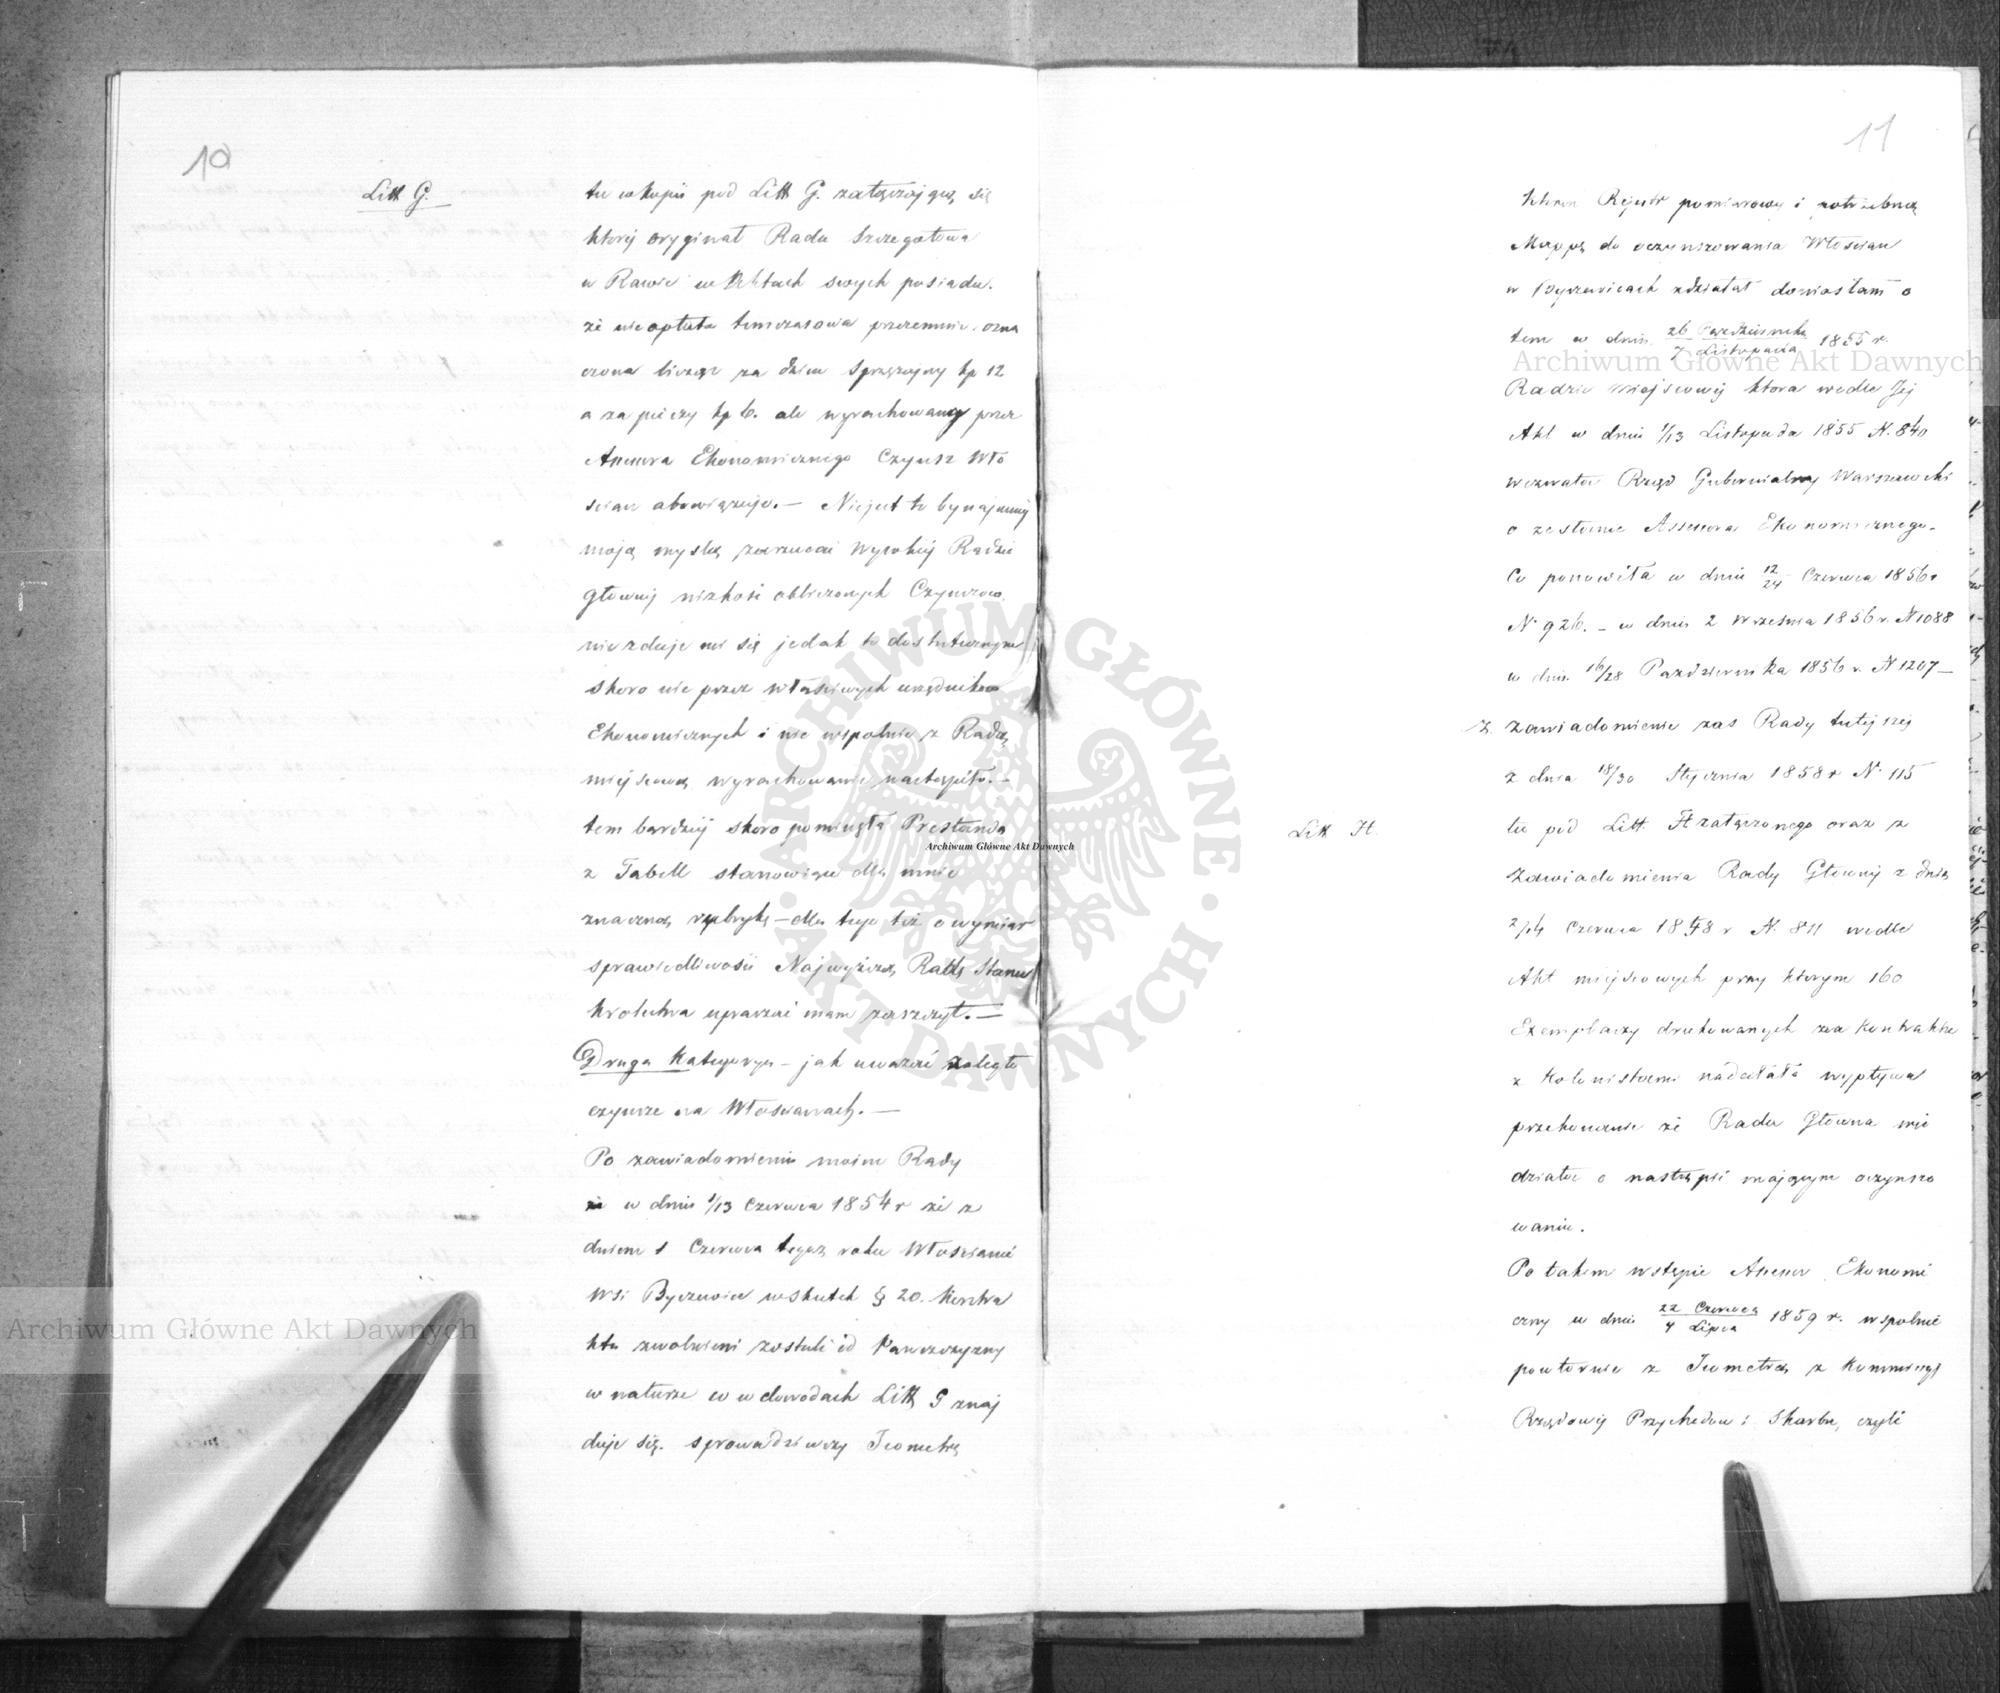 10
Litt G.
tu w kopii pod Litt G. załączającą się
której oryginał Rada Szczegółowa
w Rawie w Aktach swych posiada.
że nie opłata tymczasowa przezemnie ozna
czona licząc za dzień sprzężajny kp 12
a za pieszy kp 6. ale wyrachowany przez
Assesora Ekonomicznego Czynsz Wło
scian obowiązuje. — Niejest to bynajmniej
moją myslą zarzucać Wysokiej Radzie
głównej nizkość obliczonych Czynszów,
nie zdaje mi się jedak to dostatecznym
skoro nie przez właściwych urzędników
Ekonomicznych i nie wspolnie z Radą
miejscową wyrachowanie nastąpiło. —
tem bardziej skoro pominęła Prestanda
z Tabell stanowiące dla mnie
znaczną rubrykę — dla tego też o wymiar
sprawiedliwości Najwyższą Radę Stanu
Krolestwa upraszać mam zaszczyt. —
Druga Kategorya — jak uważać zaległe
czynsze na Włoscianach. —
Po zawiadomieniu moim Rady
w dniu 1/13 Czerwca 1854 r że z
dniem 1 Czerwca tegoż roku Włoscianie
Wsi Byczewice wskutek § 20. Kontra
ktu zwolnieni zostali od Pańszczyzny
w naturze co w dowodach Litt G znaj
duje się. sprowadziwszy Jeometrę
11
Rejestr pomiarowy i potrzebną
Mappę do oczynszowania Włoscian
w zdziałał doniosłam o
tem w dniu 26 Października / 7 Listopada 1855 r.
Radzie miejscowej ktora wedle Jej
Akt w dniu 1/13 Listopada 1855 N. 840
wezwała Rząd Gubernialny Warszawski
o zesłanie Assesora Ekonomicznego.
Co ponowiła w dniu 12/24 Czerwca 1856 r
N 926. — w dniu 2 Września 1856 r. N 1088
w dniu 16/28 Pazdziernika 1856 r. N 1207 —
Z. Zawiadomienie zas Rady tutejszej
z dnia 18/30 Stycznia 1858 r N. 115
Litt H.
tu pod Litt. H załączonego oraz z
Zawiadomienia Rady Głownej z dnia
2/14 Czerwca 1858 r N. 811 wedle
Akt miejscowych przy ktorym 160
Exemplarzy drukowanych na Kontrakta
z Kolonistami nadesłała wypływa
przekonanie że Rada Głowna wie
działa o nastąpić mającym oczynszo
waniu.
Po takim wstępie Assesor Ekonomi
czny w dniu 22 Czerwca / 4 Lipca 1859 r. wspolnie
powtornie z Jeometrą z Kommissyi
Rządowej Przychodow i Skarbu, czyli
Archiwum Główne Akt Dawnych
Archiwum Główne Akt Dawnych
Archiwum Główne Akt Dawnych
ARCHIWUM GŁÓWNE · AKT DAWNYCH ·